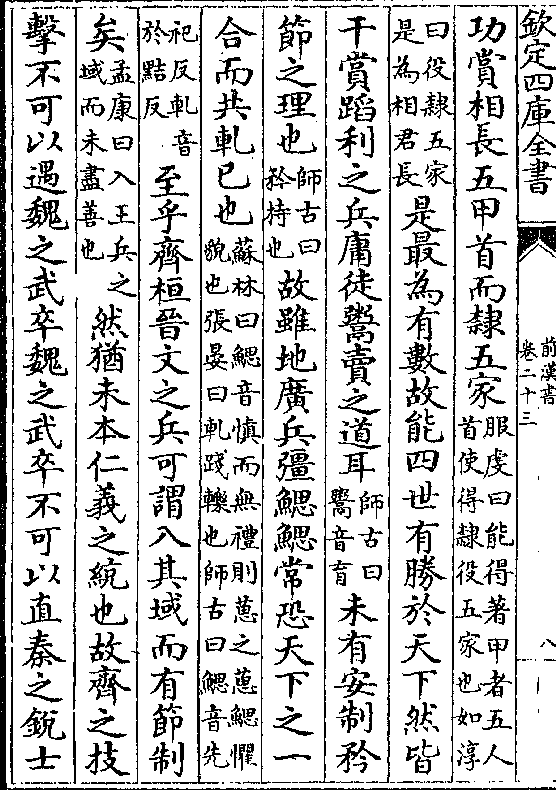 欽定四庫全書
前漢書
卷二十三
八
功賞相長五甲首而𨽻五家服虔曰能得著甲者五人
首使得𨽻役五家也如淳
曰役𨽻五家
是為相君長是最為有數故能四世有勝於天下然皆
干賞蹈利之兵庸徒鬻賣之道耳師古曰
鬻音育未有安制矜
節之理也師古曰
矜持也故雖地廣兵彊鰓鰓常恐天下之一
合而共軋已也蘇林曰鰓音慎而無禮則葸之葸鰓懼
貌也張晏曰軋踐轢也師古曰鰓音先
祀反軋音
於黠反至乎齊桓晉文之兵可謂入其域而有節制
矣孟康曰入王兵之
域而未盡善也然猶未本仁義之統也故齊之技
擊不可以遇魏之武卒魏之武卒不可以直秦之銳士